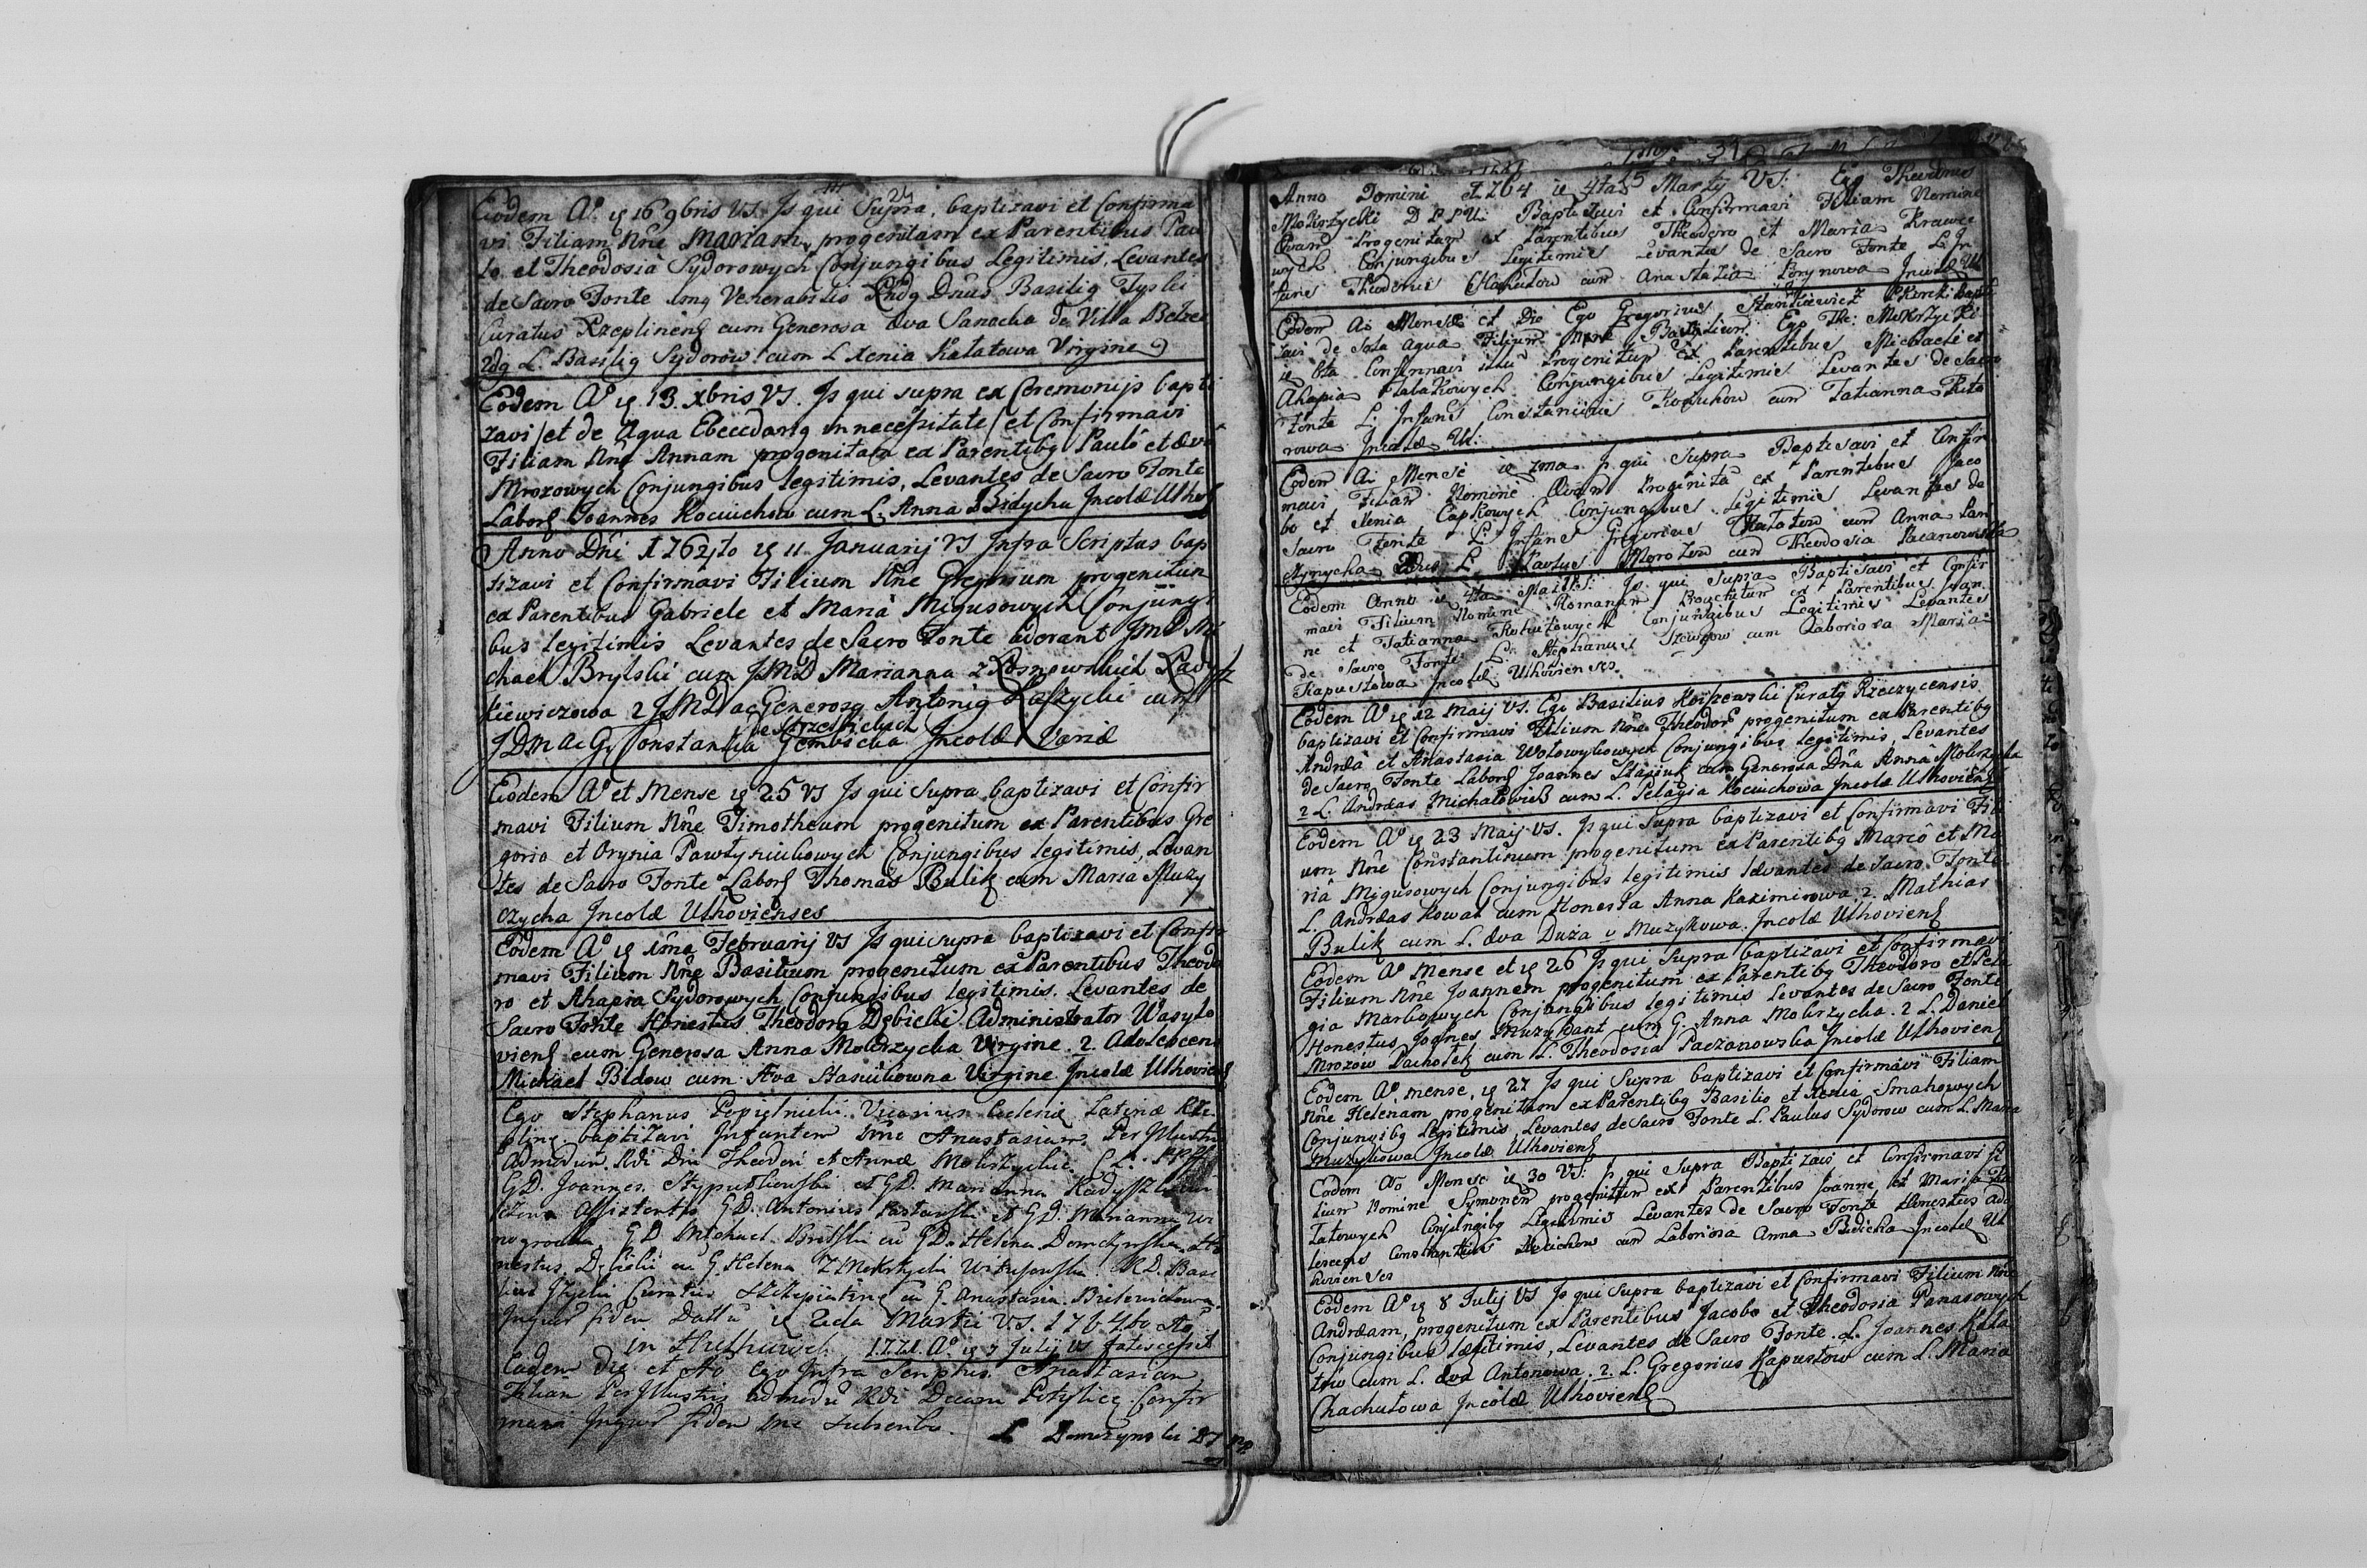 24
Eodem Aº ię 16 9bris VS. Is qui Supra, baptizavi et Confirma
vi Filiam Nñe Mariam, progenitam ex Parentibus Pau
lo et Theodosia Sydorowych Conjungibus Legitimis, Levantes
de Sacro Fonte Venerabilis Dnus Basilig Tyski
Curatus Rzeplinens cum Generosa Eva Sanocka de Villa Betzec
2dg L. Basilig Sydorow cum L Xenia Katatowa Virgine
Eodem Aº ię 13 Xbris VS. Is qui supra ex Ceremonijs bapti
zavi et de Aqua in necessitate et Confirmavi
Filiam Nñe Annam progenitam ex Parentibg Paulo et Eva
Mrozowych Conjungibus legitimis, Levantes de Sacro Fonte
Labors Joannes Kocuichow cum L. Anna Bidycha Incolæ Uthov
Anno Dñi 1764to ię 11 Januarij VS Infra Scriptus bap
tizavi et Confirmavi Filium Nñe Gregorium progenitum
ex Parentibus Gabriele et Maria Migusowych Conjungi
bus legitimis Levantes de Sacro Fonte aderant JMD Mi
chael Brylski cum JMD Marianna z Losnowskich Rady
kiewiczowa 2 JMD ac Generosg Antonig Łaszycki cum
de Strzelbickich
JDM ac G. Constantia Gembicka Incolæ Variæ
Eodem Aº et Mense ię 25 VS Is qui Supra baptizavi et Confir
mavi Filium Nñe Timotheum progenitum ex Parentibus Gre
gorio et Orynia Pawłyniukowych Conjungibus legitimis, Levan
tes de Sacro Fonte Labors Thomas Bulik cum Maria Muzy
czycha Incolæ Uthovienses
Eodem Aº ię 1ma Februarij VS Is qui supra baptizavi et Confir
mavi Filium Nñe Basilium progenitum ex Parentibus Theodo
ro et Ahapia Sydorowych Conjungibus legitimis. Levantes de
Sacro Fonte Honestus Theodorg Dębicki Administrator Wasyło
viens cum Generosa Anna Mokrzycka Virgine. 2. Adolescens
Michael Bidow cum Ava Stasiukowna Virgine Incolæ Uthoviens
Ego Stephanus Popielnicki Vicarius Ecclesiæ Latinæ
baptizavi Infantem nñe Anastasiam Per Illustris
Admodum Rdi Dni Theodori et Annæ Mokrzyckie
GD. Joannes Stypułkowski et GD. Marianna Radyszkiewi
czowa Assistentes GD. Antonius Pastawski et GD. Marianna Wi
nogrodzka GD Michael Brilski cu GD. Helena Domczynska
nestus Dębicki cu G. Helena z Mokrzycki RD. Basi
lius Curatus cu G. Anastasia
Inquor fidem Dattu ię 2da Martii VS. 1764to Ao
in Uthowek 1771 Aº ię 7 Julij VS fatiscessit
Eadem Die et Ao Ego Infra Scriptus Anastasiam
Filiam Per Illustris admodu Rdi Decani Potylice Confir
mavi Inquor fidem me Subscribo.
Domczynski DT mp
31
Anno Domini 1764 ię 4ta 5 Martij VS. Ego Theodorus
Mokrzycki D P P U. Baptizavi et Confirmavi Filiam Nomine
Evam Progenitam ex Parentibus Theodoro et Maria Krawce
wych Conjungibus Legitimis Levantes de Sacro Fonte L. In
fans Theodorus Chakutow cum Anastazia Porynowa Incolæ Ut
Eodem Ao Mense et Die Ego Gregorius Stankiewicz Bapti
zavi de Sola Aqua Filium Nñe Basilium Ego The: Mokrzycki
ię 8ta Confirmavi illu Progenitum Ex Parentibus Michaele et
Ahapia Patakowych Conjungibus Legitimis Levantes de Sacro
Fonte L. Infans Constantius Kocuchow cum Tatianna Sido
rowa Incolæ Ut:
Eodem Ao Mense ię 7ma Is qui Supra Baptisavi et Confir
mavi Filiam Nomine Evam Progenita ex Parentibus Jaco
bo et Xenia Capkowych Conjungibus Legitimis Levantes de
Sacro Fonte L. Infans Gregorius Katatow cum Anna Pan
tynycha 2dus L. Pavlus Morozow cum Theodosia Pacanowska
Eodem Anno ię 4ta Maii VS: Is qui Supra Baptisavi et Confir
mavi Filium Nomine Romanum Progenitum ex Parentibus Ivan
ne et Tatianna Kohutowych Conjungibus Legitimis Levantes
de Sacro Fonte L. Stephanus Szewcow cum Laboriosa Maria
Kapustowa Incolæ Uthovienses
Eodem Aº ię 12 Maij VS. Ego Basilius Koiszewski Curatg Rzeczycensis
baptizavi et Confirmavi Filium Nñe Theodorũ progenitum ex Parentibg
Andræa et Anastasia Wołowykowych Conjungibus legitimis, Levantes
de Sacro Fonte Labors Joannes Stasiuk cum Generosa Dña Anna Mokrzycka
2 L. Andræas Michałowicz cum L. Pelagia Kocuichowa Incolæ Uthoviens
Eodem Aº ię 23 Maij VS. Is qui Supra baptizavi et Confirmavi Fili
um Nñe Constantinum progenitum ex Parentibg Marco et Ma
ria Migusowych Conjungibus legitimis Levantes de Sacro Fonte
L. Andræas Kowal cum Honesta Anna Kazimirowa 2. Mathias
Bulik cum L. Eva Duża v Muzykowa. Incolæ Uthoviens
Eodem Aº Mense et ię 26 Is qui Supra baptizavi et Confirmavi
Filium Nñe Joannem progenitum ex Parentibg Theodoro et Pela
gia Markowych Conjungibus legitimis Levantes de Sacro Fonte
Honestus Joañes Muzykant cum G. Anna Mokrzycka. 2 L. Daniel
Mrozow Pachołek cum L. Theodosia Paczanowska Incolæ Uthoviens
Eodem Aº mense, ię 27 Is qui Supra baptizavi et Confirmavi Filiam
Nñe Helenam, progenitam ex Parentibg Basilio et Xenia Smahowych
Conjungibg Legitimis, Levantes de Sacro Fonte L. Paulus Sydorow cum L. Maria
Muzykowa Incolæ Uthoviens
Eodem Ao Mense ię 30 VS. Is qui Supra Baptizavi et Confirmavi Fi
lium Nomine Symonem progenitum ex Parentibus Joanne et Maria Ka
tatowych Conjungibg Legitimis Levantes de Sacro Fonte Honestus Ado
lescens Constantius Kocichow cum Laboriosa Anna Bidicha Incolæ Ut
hovienses
Eodem Aº ię 8 Julij VS Is qui Supra baptizavi et Confirmavi Filium Nñe
Andræam, progenitum ex Parentibus Jacobo et Theodosia Panasowych
Conjungibus Legitimis, Levantes de Sacro Fonte. L. Joannes Kata
tow cum L. Eva Antonowa. 2. L. Gregorius Kapustow cum L. Maria
Chachutowa Incolæ Uthoviens